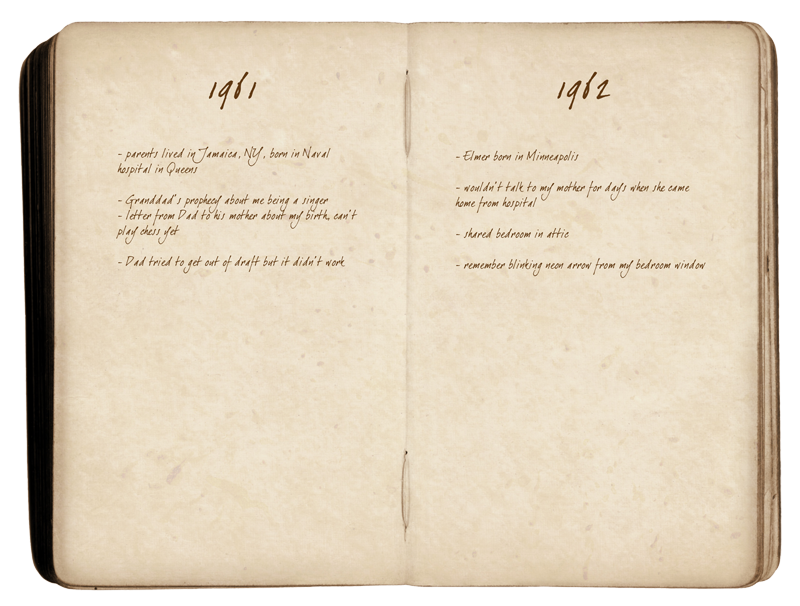 1961
- parents lived in Jamaica, NY, born in Naval
hospital in Queens
- Granddad's prophecy about me being a singer
- letter from Dad to his mother about my birth, can't
play chess yet
- Dad tried to get out of draft but it didn't work
1962
- Elmer born in Minneapolis
- wouldn't talk to my mother for days when she came
home from hospital
- shared bedroom in attic
- remember blinking neon arrow from my bedroom window